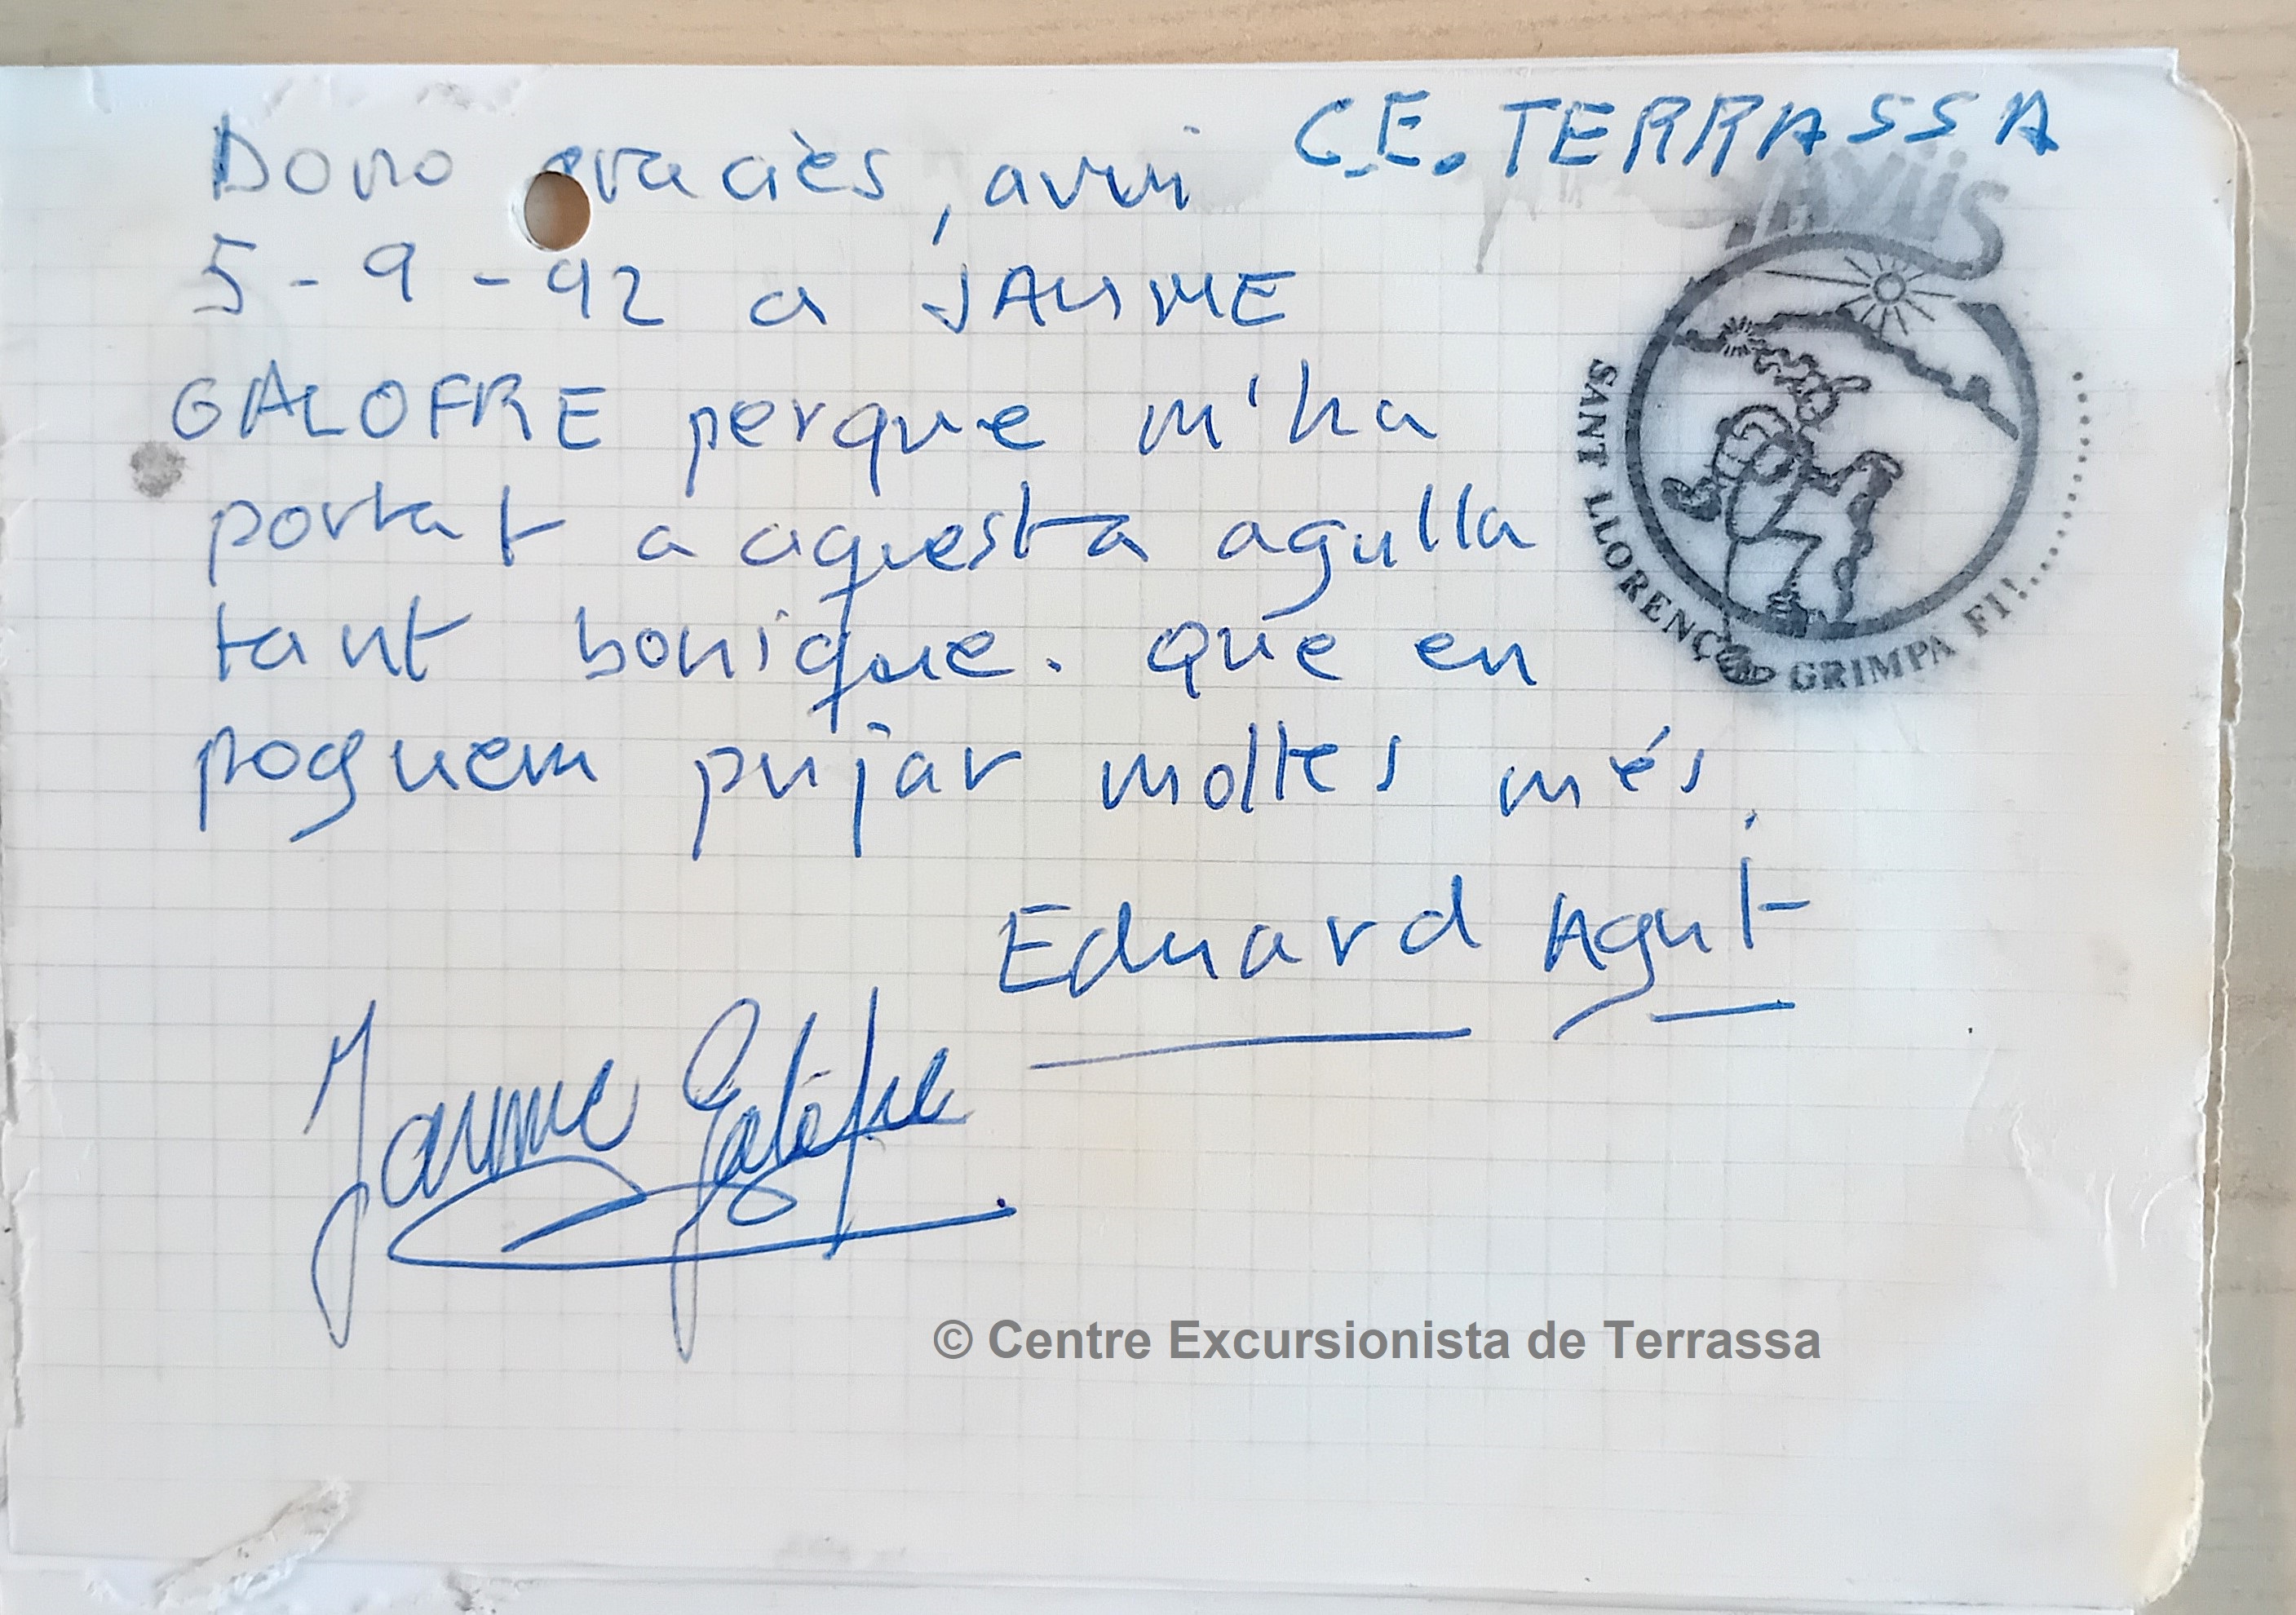 C.E. TERRASSA
Dono gracies, avui
5-9-92 a JAUME
GALOFRE perque m'ha
portat a aquesta agulla
tant bonique. que en
poguem pujar moltes més.
Eduard Agut
Jaume Galofre
SANT LLORENÇ GRIMPA FI!......
© Centre Excursionista de Terrassa